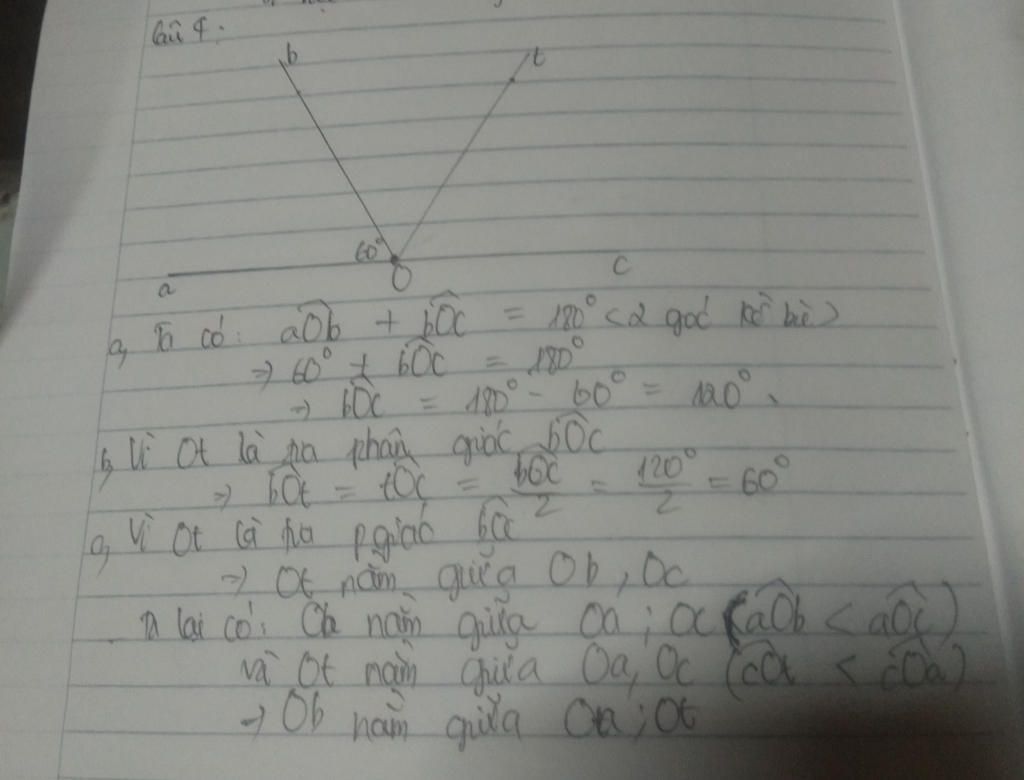 Câu 4:
b
t
60°
a
O
c
a, Ta có: aÔb + bÔc = 180° <2 góc kề bù>
⇒ 60° + bÔc = 180°
⇒ bÔc = 180° - 60° = 120°.
b, Vì Ot là tia phân giác bÔc
⇒ bÔt = tÔc = bÔc/2 = 120°/2 = 60°
c, Vì Ot là tia pgiác bÔc
⇒ Ot nằm giữa Ob, Oc
Ta lại có: Ob nằm giữa Oa; Oc (aÔb < aÔc)
và Ot nằm giữa Oa, Oc (cÔt < cÔa)
⇒ Ob nằm giữa Oa; Ot